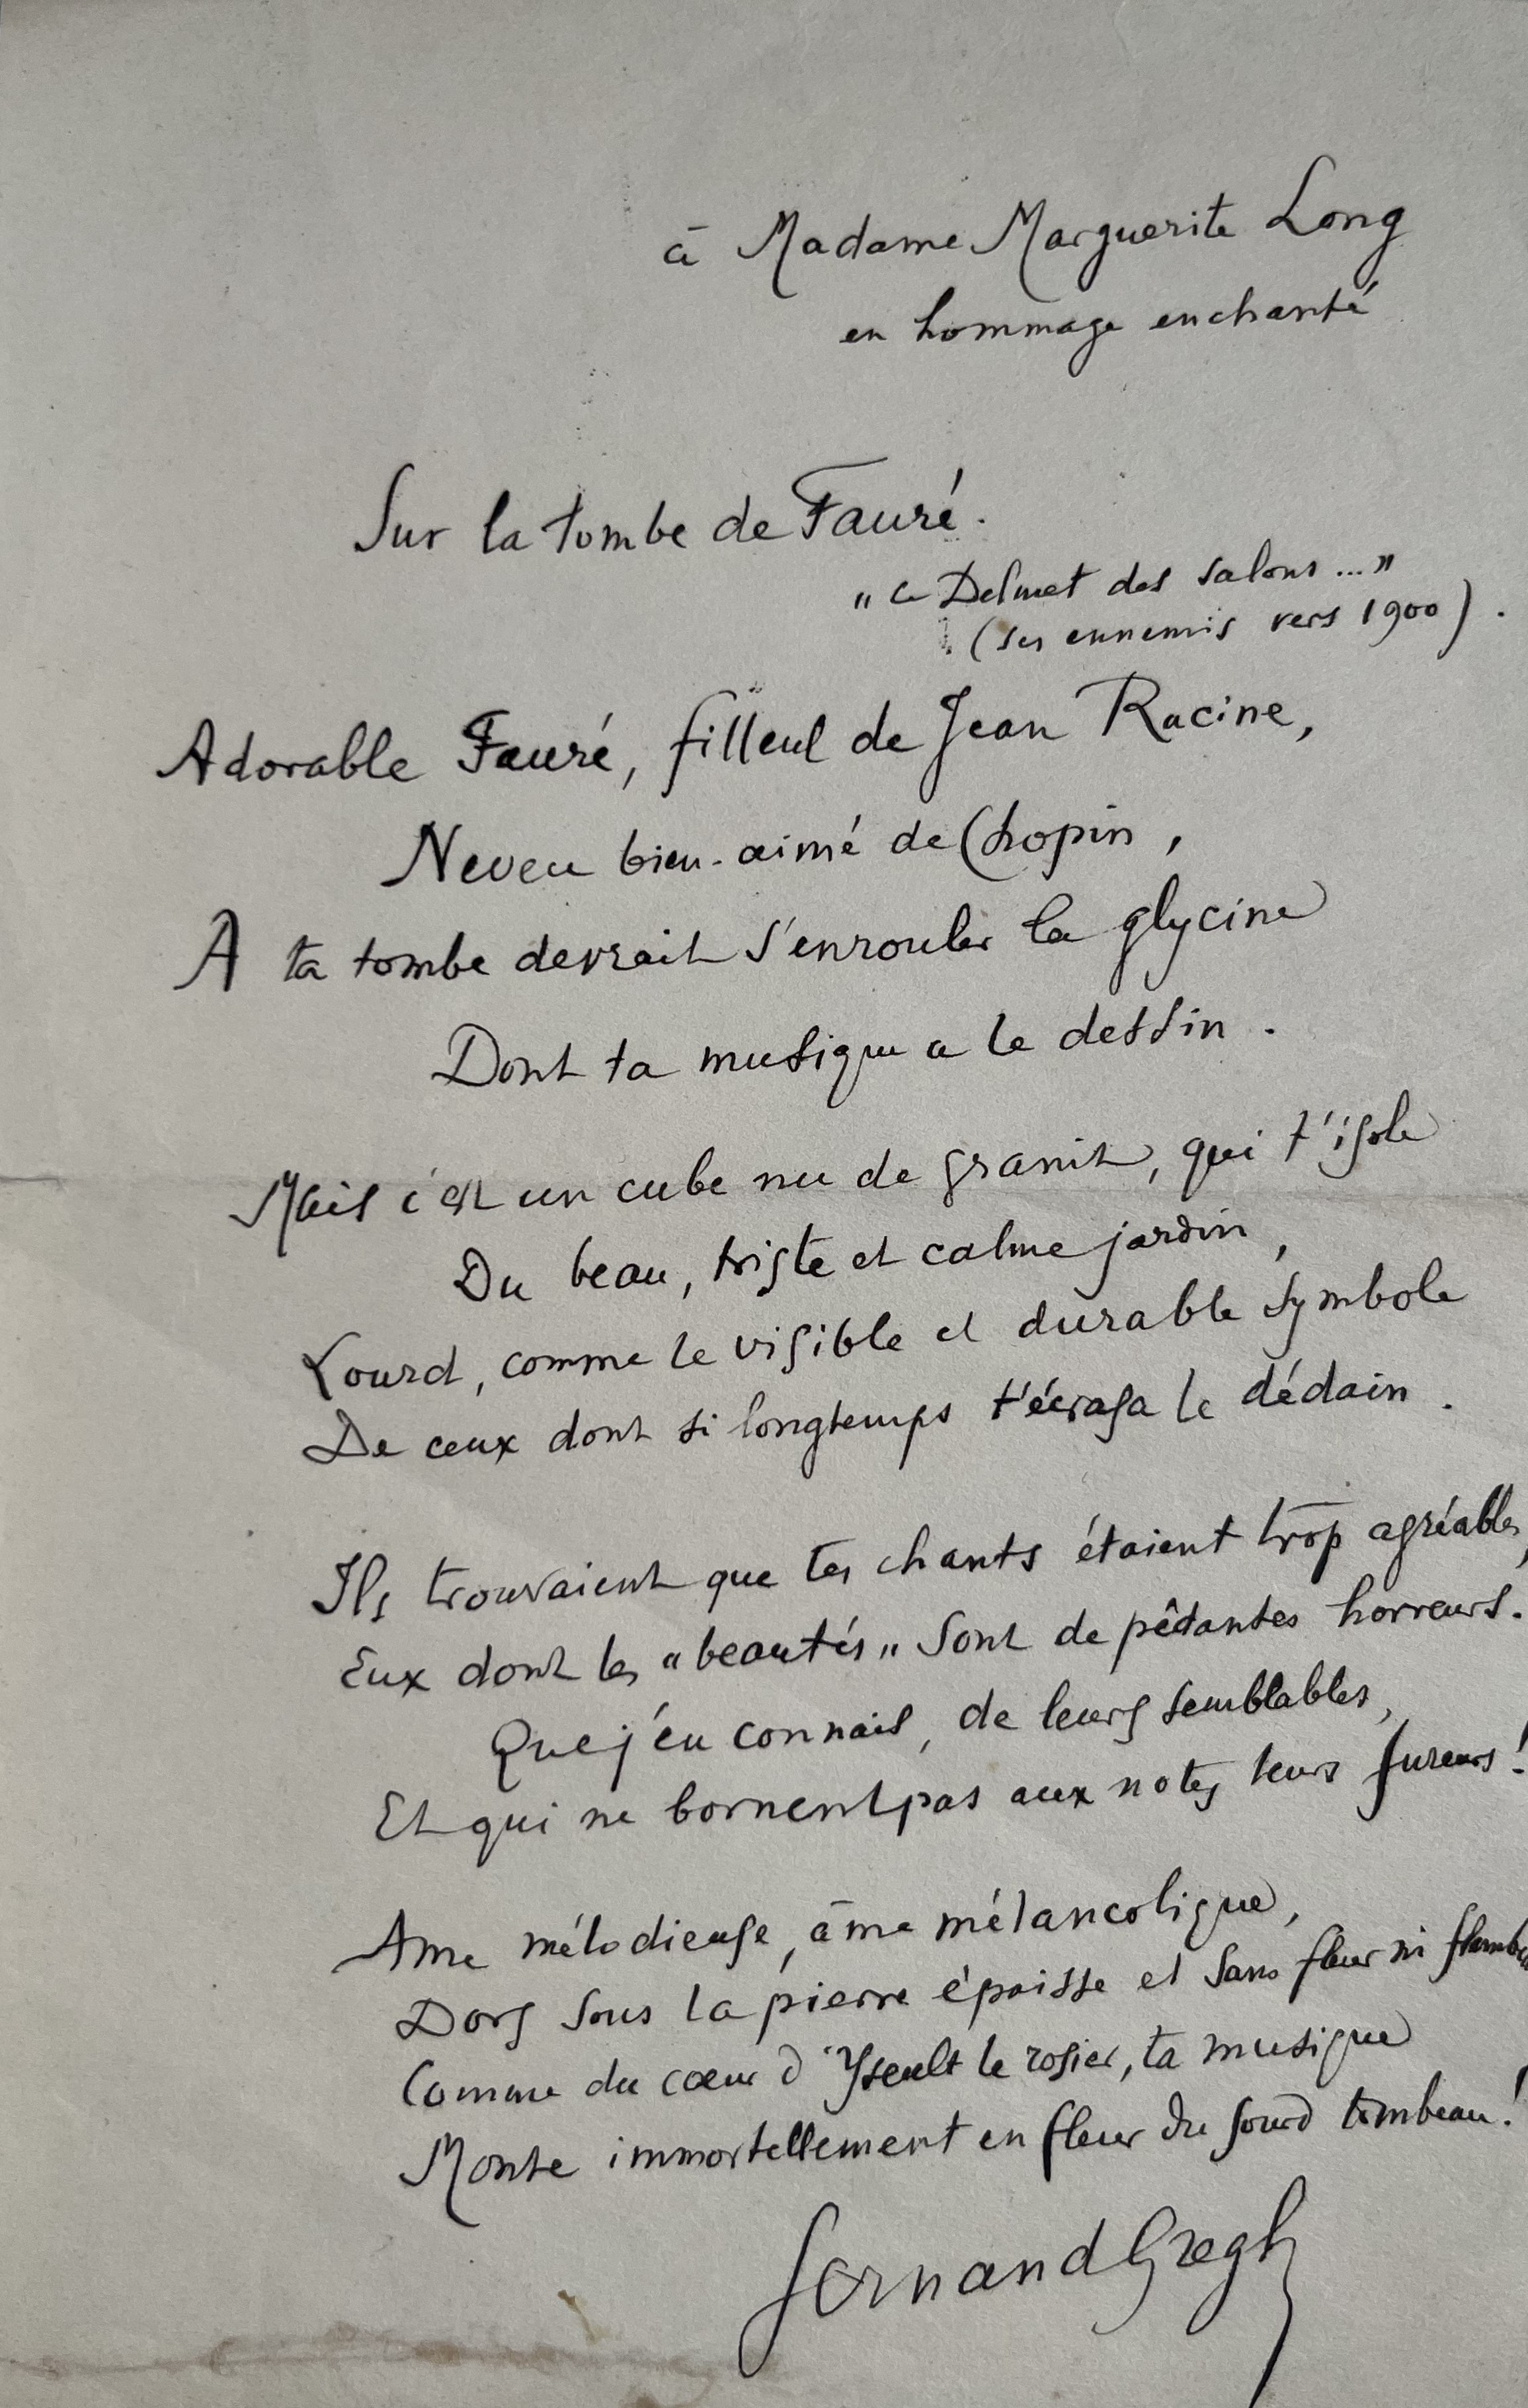 à Madame Marguerite Long
en hommage enchanté
Sur la tombe de Fauré.
"ce Delmet des salons..."
(ses ennemis vers 1900).
Adorable Fauré, filleul de Jean Racine,
Neveu bien-aimé de Chopin,
A ta tombe devrait s'enrouler la glycine
Dont ta musique a le dessin.
Mais c'est un cube nu de granit, qui t'isole
Du beau, triste et calme jardin,
Lourd, comme le visible et durable symbole
De ceux dont si longtemps t'écrasa le dédain.
Ils trouvaient que tes chants étaient trop agréables,
Eux dont les "beautés" sont de pédantes horreurs.
Que j'en connais, de leurs semblables,
Et qui ne bornent pas aux notes leurs fureurs!
Ame mélodieuse, âme mélancolique,
Dors sous la pierre épaisse et sans fleur ni flambeau
Comme du cœur d'Yseult le rosier, ta musique
Monte immortellement en fleur du sourd tombeau!
Fernand Gregh